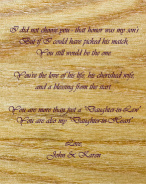 I did not choose you - that honor was my son's
But if I could have picked his match,
You still would be the one.
You're the love of his life, his cherished wife,
and a blessing from the start.
You are more than just a "Daughter-in-Law"
You are also my "Daughter-in-Heart"
Love,
John & Karen